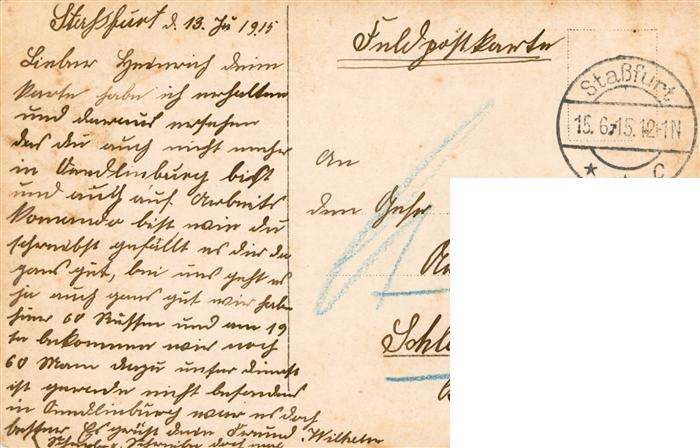 Staßfurt d. 13. Ju 1915
Lieber Heinrich deine
Karte habe ich erhalten
und daraus ersehen
das du auch nicht mehr
in Quedlinburg bist
und auch auf Arbeits
Komando bist wie du
schreibst gefällt es dir da
gans gut, bei uns geht es
ja auch gans gut wir habe
hier 60 Russen und am 19
te bekommen wir noch
60 Mann dazu unser dienst
ist gerade nicht besonders
in Quedlinburg war es doch
besser. Es grüst dein Freund Wilhelm
Schreibe doch
Feldpostkarte
Staßfurt
15.6.15.12-1N
* c
An
dem Gefr
Schl